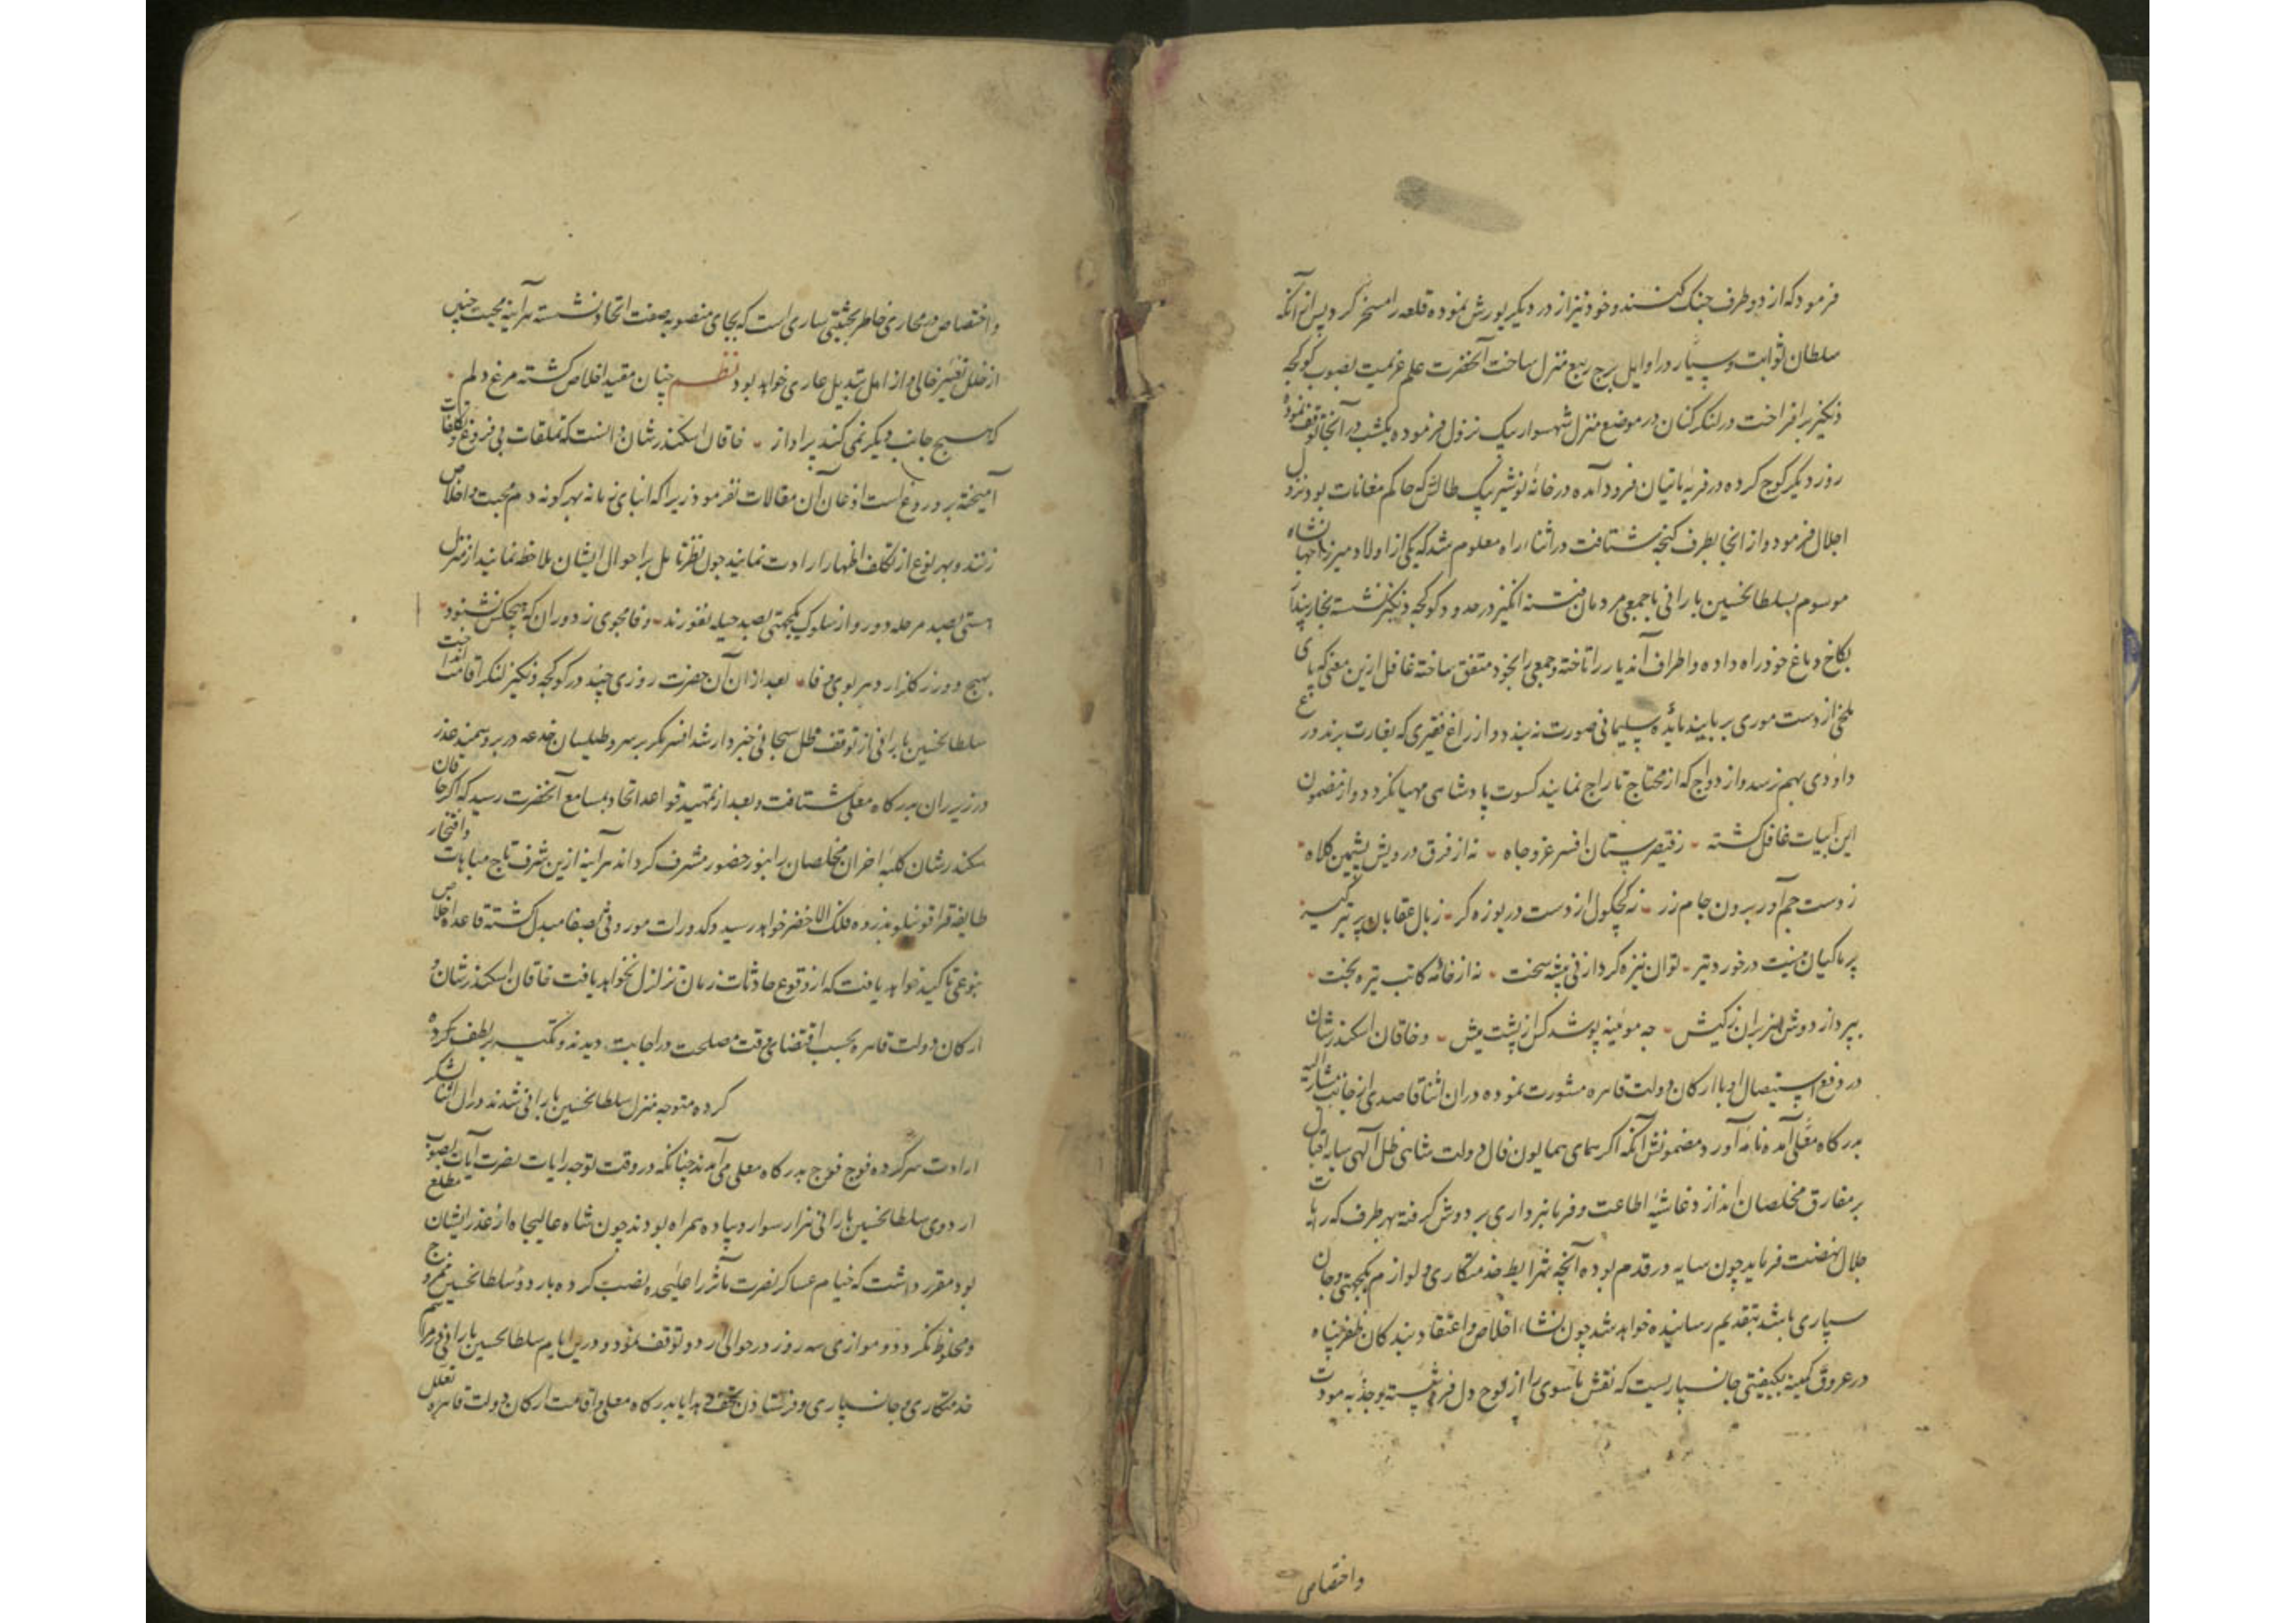 فرمود که از دو طرف جنک کنند و خود نیز از در دیکر یورش نموده قلعه را مسخر کرد پس از آنکه
سلطان ثوابت و سیار در اوایل برج ربیع منزل ساخت آنحضرت علم عزیمت بصوب کوکجه
دنکیز برافراخت در لنکرکنان در موضع منزل شهسوار بیک نزول فرموده یکشب در آنجا توقف نموده
روز دیکر کوچ کرده در قریه فرود آمده در خانه نوشیر بیک طالش که حاکم مغانات بود نزول
اجلال فرمود و از انجا بطرف کنجه شتافت در اثناء راه معلوم شد که یکی از اولاد میرزا جهانشاه
موسوم بسلطانحسین بارانی با جمعی مردمان فتنه انکیز در حدود کوکجه دنکیز نشسته بخار پندار
بکاخ دماغ خود راه داده و اطراف آندیار را تاخته و جمعی را بخود متفق ساخته غافل ازین معنی که پای
ملخی از دست موری بربایند مایده سلیمانی صورت نه بندد و از زاغ فقیری که بغارت برند درع
داودی بهم نرسد و از دواج که از محتاج تاراج نمایند کسوت پادشاهی مهیا نکردد و از مضمون
این ابیات غافل کشته ز قیصر ستان افسر عز و جاه نه از فرق درویش پشمین کلاه
ز دست جم آور برون جام زر ز کجکول از دست دریوزه کر ز بال عقابان پر تیر کیر
پر ماکیان نیست در خورد تیر توان نیزه کردار نی بیشه سخت نه از خانه کاتب تیره بخت
بپرداز دوش هزبران ز کیش چه موئینه پوشد کس از پشت میش و خاقان اسکندرشان
در دفع استیصال او با ارکان دولت قاهره مشورت نموده در ان اثنا قاصدی از جانب مشارالیه
بدرکاه معلی آمده نامه آورد مضمونش آنکه اکر همای همایون فال دولت شاهی ظل آلهی سایه اقبال
بر مفارق مخلصان انداز د غاشیه اطاعت و فرمانبرداری بر دوش کرفته بهر طرف که رایات
جلال نهضت فرماید چون سایه در قدم بوده آنچه شرایط خدمتکاری و لوازم یکجهتی و جان
سپاری باشد بتقدیم رسانیده خواهد شد چون نشاء اخلاص و اعتقاد بندکان ظفر پناه
در عروق کمینه بکیفیتی جانسپاریست که نقش ماسوی را از لوح دل فرو شسته و جذبه مودت
واختصاص
واختصاص در مجاری خاطر بحیثیتی ساری است که بجای منصوبه صفت اتحاد نشسته هرآینه محبت چنین
از خلل تغییر خالی و از اهل تبدیل عاری خواهد بود نظم چنان مقید اخلاص کشته مرغ دلم
که هیچ جانب دیکر نمی کند پرواز خاقان اسکندرشان دانست که تملقات بی فروغ و تکلفات
آمیخته بر دروغ است اذعان آن مقالات نفرمود زیرا که ابنای زمانه بهر کونه دم محبت و اخلاص
زنند و بهر نوع از تکلف اظهار ارادت نمایند چون نظر تامل بر احوال ایشان ملاحظه نمایند از منزل
بصد مرحله دور و از سلوک یکجهتی بصد حیله نفورند وفا مجوی ز دوران که هیچکس نشنود
بهیچ دور ز کلزار دهر بوی وفا بعد از ان آن حضرت روزی چند در کوکجه دنکیز لنکر اقامت انداخت
سلطانحسین بارانی از توقف ظل سبحانی خبردار شد افسر مکر بر سر و طیلسان خدعه در بر و سمند عذر
در زیر ران بدرکاه معلی شتافت و بعد از تمهید قواعد اتحاد بمسامع آنحضرت رسید که اکر خاقان
سکندرشان کلبه احزان مخلصان را بنور حضور مشرف کرداند هرآینه ازین شرف تاج مباهات وافتخار
طایفه قراقوینلو بذروه فلک الاخضر خواهد رسید و کدورات موروثی بصفا مبدل کشته قاعده اخلاص
بنوعی تاکید خواهد یافت که از وقوع حادثات زمان تزلزل نخواهد یافت خاقان اسکندرشان و
ارکان دولت قاهره بحسب اقتضای وقت مصلحت در اجابت دیدند و تکیه بر لطف کرده
کرده متوجه منزل سلطانحسین بارانی شدند در ان اثنا لشکر
ارادت سرکرده فوج فوج بدرکاه معلی می آمدند چنانکه در وقت توجه رایات نصرت آیات بصوب
اردوی سلطانحسین بارانی هزار سوار و پیاده همراه بودند چون شاه عالیجاه از عذر ایشان مطلع
بود مقرر داشت که خیام عساکر نصرت مآثر را علیحده نصب کرده بار دوء سلطانحسین ممزوج
و مخلوط نکردد و موازی سه روز در حوالی اردو توقف نمود و درین ایام سلطانحسین بارانی در مراسم
خدمتکاری و جانسپاری و فرستادن تحف و هدایا بدرکاه معلی و اقامت ارکان دولت قاهره تعلل